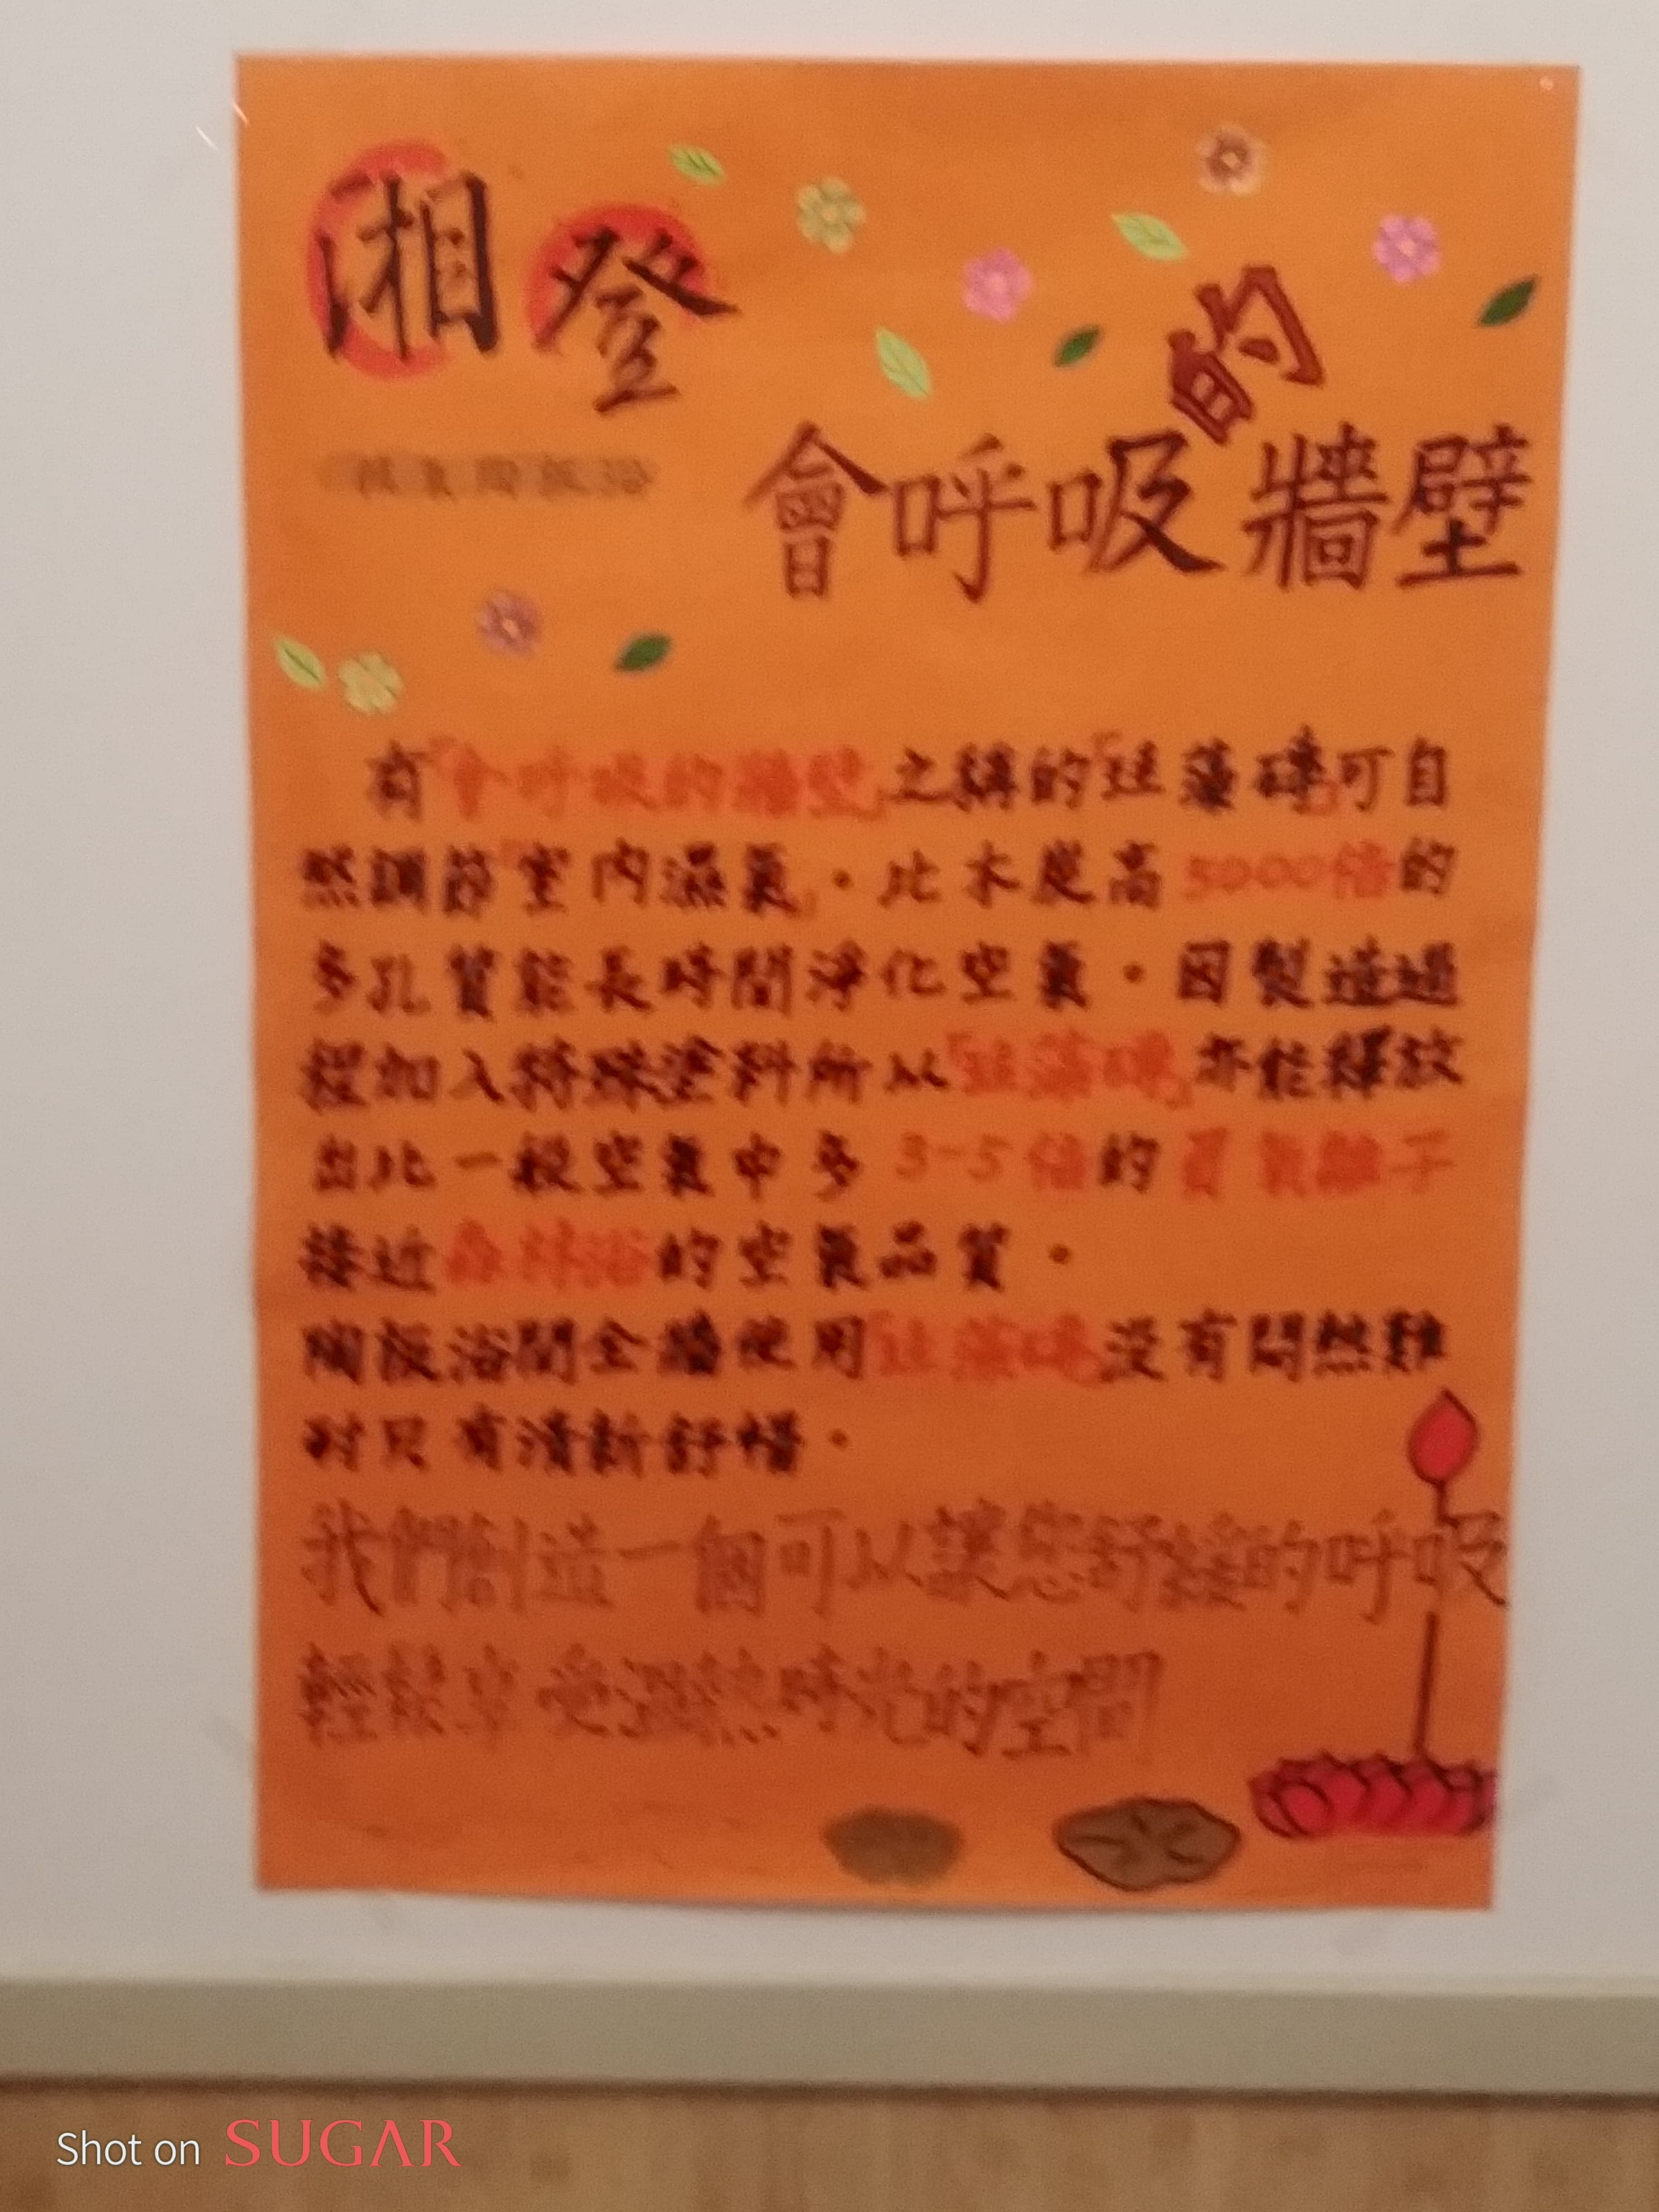 湘登
的
會呼吸 牆壁
有「會呼吸的牆壁」之稱的「珪藻磚」可自
然調節「室內濕氣」。比木炭高5000倍的
多孔質能長時間淨化空氣。因製造過
程加入特殊塗料所以「珪藻磚」亦能釋放
出比一般空氣中多3-5倍的負氧離子
接近森林浴的空氣品質。
陶板浴間全牆使用「珪藻磚」沒有悶熱難
耐只有清新舒暢。
我們創造一個可以讓您舒緩的呼吸
輕鬆享受溫熱時光的空間
Shot on SUGAR